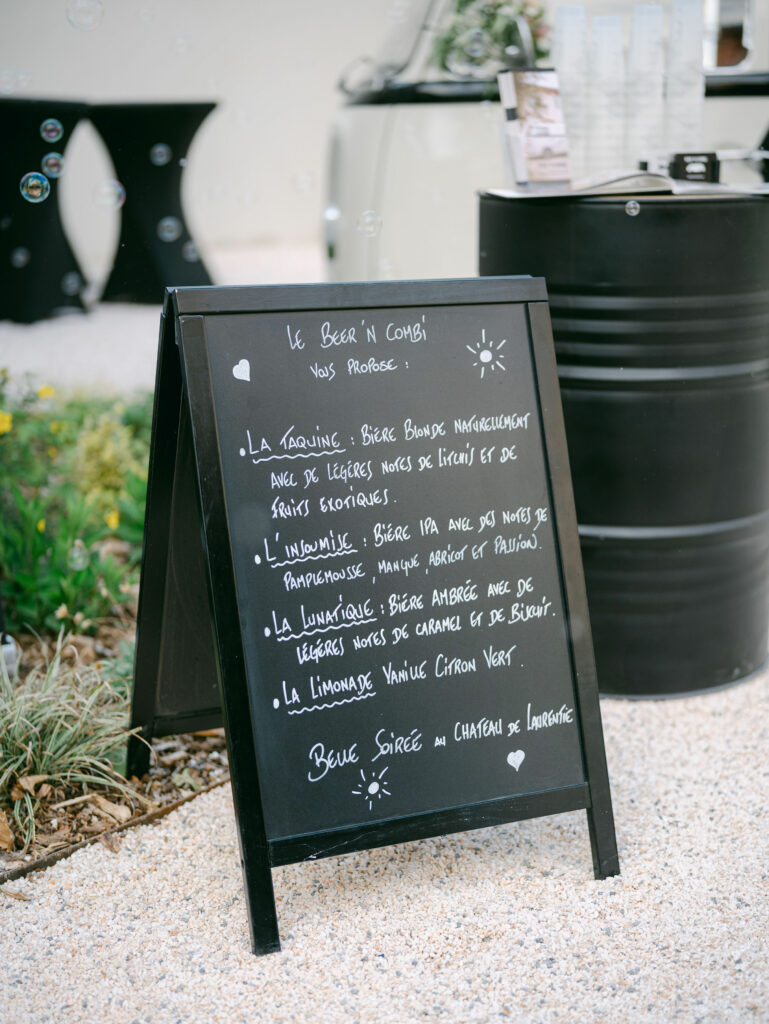 LE BEER'N COMBI
VOUS PROPOSE :
LA TAQUINE : BIÈRE BLONDE NATURELLEMENT
AVEC DE LÉGÈRES NOTES DE LITCHIS ET DE
FRUITS EXOTIQUES.
L'INSOUMISE : BIÈRE IPA AVEC DES NOTES DE
PAMPLEMOUSSE, MANGUE, ABRICOT ET PASSION.
LA LUNATIQUE : BIÈRE AMBRÉE AVEC DE
LÉGÈRES NOTES DE CARAMEL ET DE BISCUIT.
LA LIMONADE VANILLE CITRON VERT.
BELLE SOIRÉE AU CHATEAU DE LAURENTIE